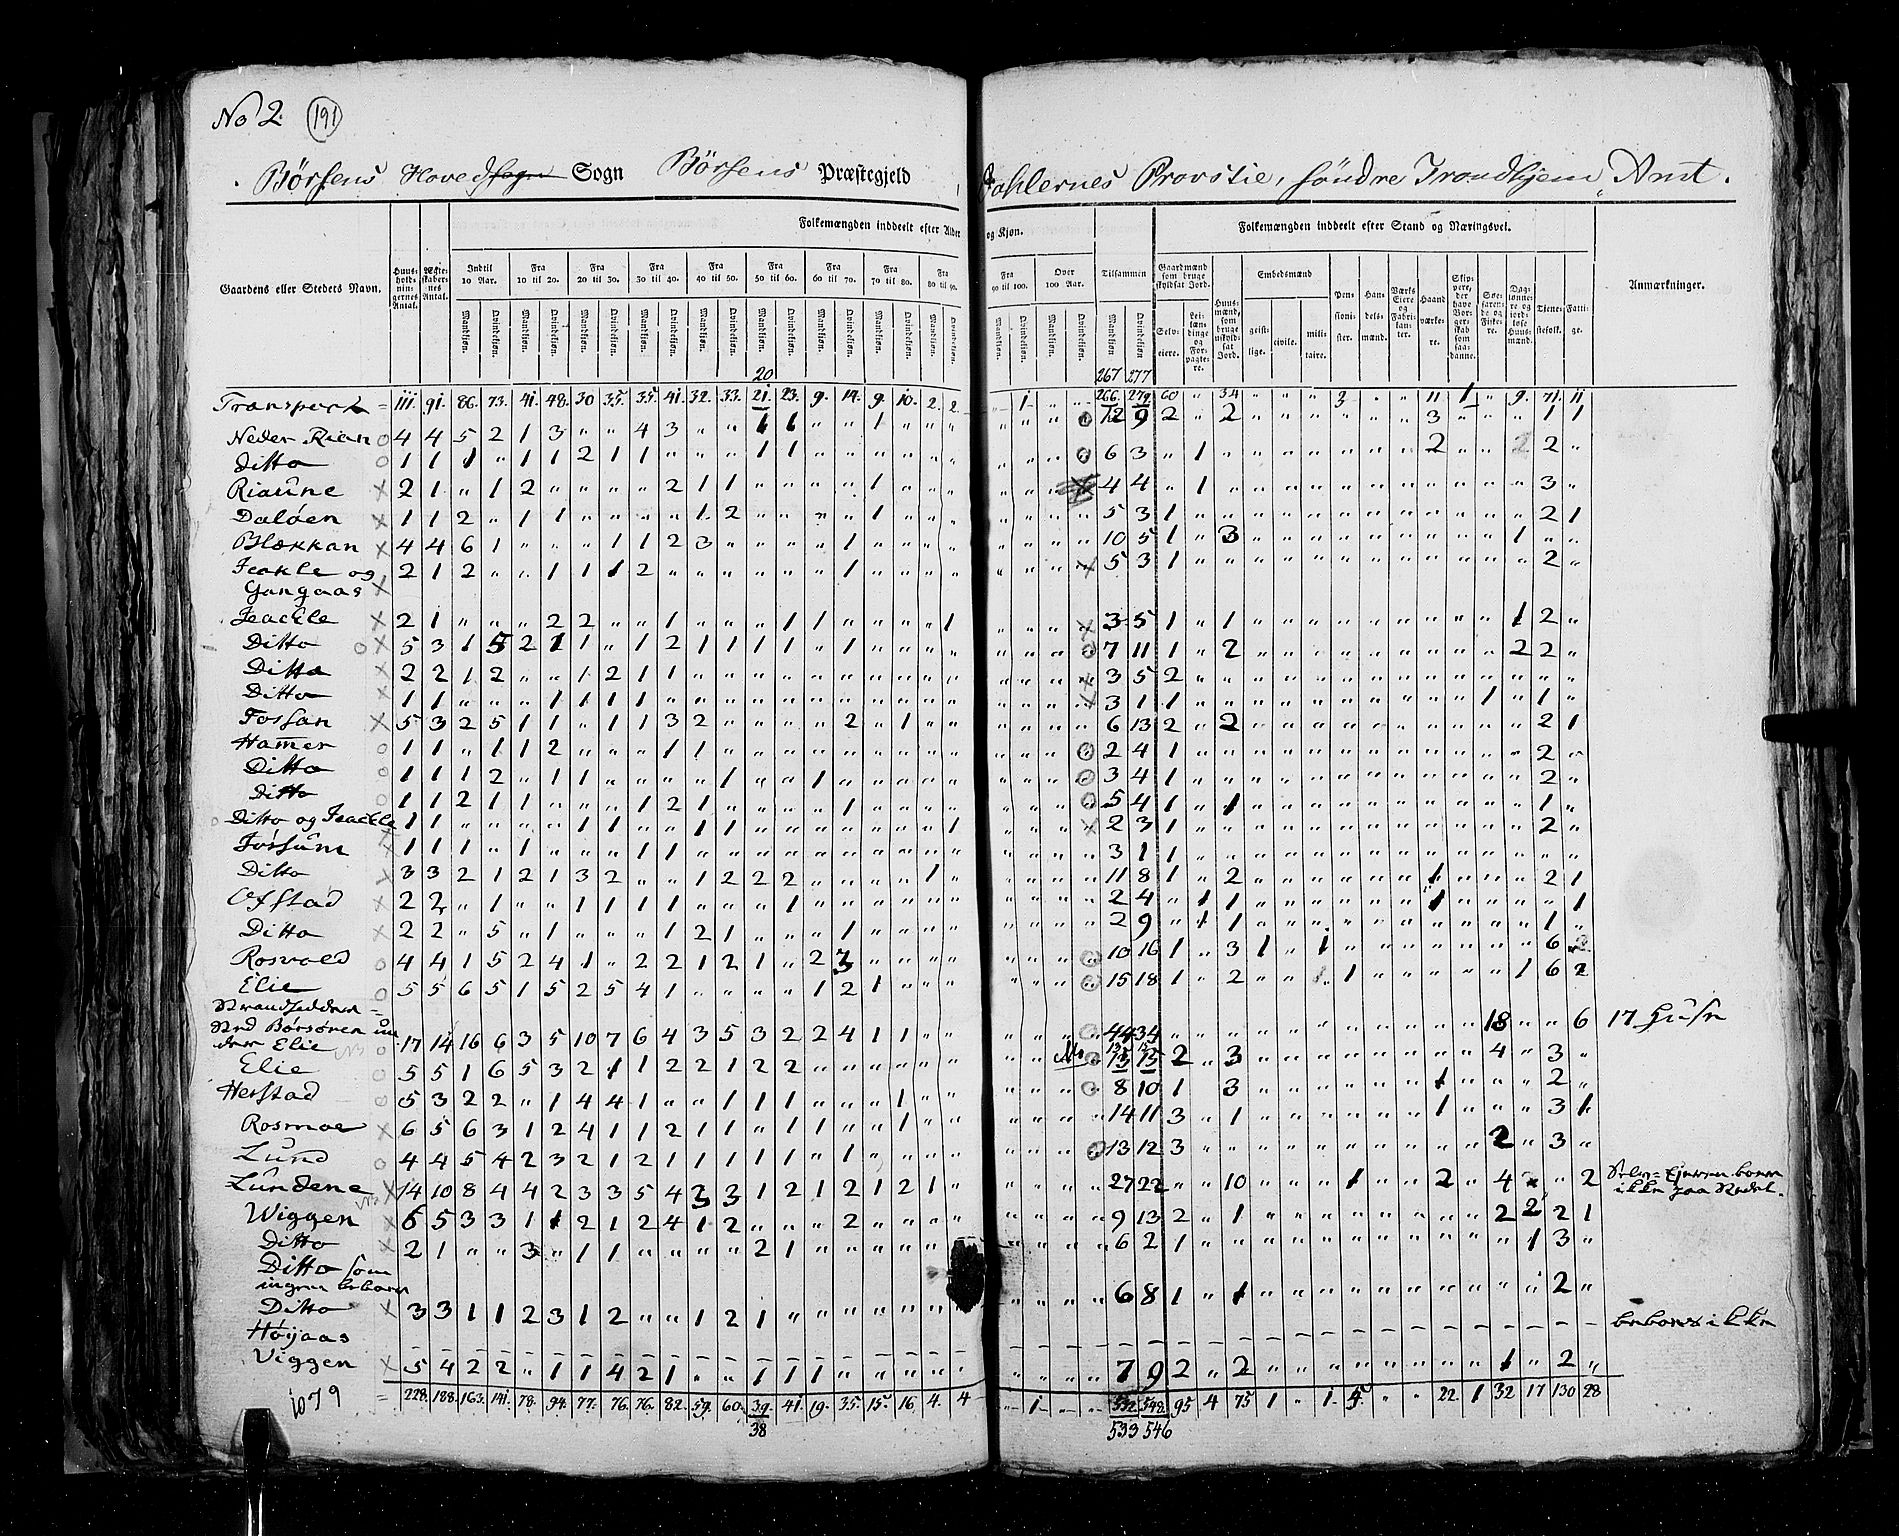 No 2. 191
Börsens Hovedsogn Sogn Börsens Præstegjeld Dahlernes Provstie, søndre Trondhjem Amt.
Folkemængden inddeelt efter Alder og Kjøn. Folkemængden inddeelt efter Stand og Næringsvei.
Gaardens eller Steders Navn. Huus-holdnin-gernes Antal. Ægte-skaber-nes Antal. Indtil 10 Aar. Fra 10 til 20. Fra 20 til 30. Fra 30 til 40. Fra 40 til 50. Fra 50 til 60. Fra 60 til 70. Fra 70 til 80. Fra 80 til 90. Fra 90 til 100. Over 100 Aar. Tilsammen Gaardmænd som bruge skyldsat Jord. Embedsmænd Anmærkninger.
Mandkjøn. Qvindekjøn.
Selv-eiere. Lei-læn-dinge og For-pagte-re. Huus-mænd, som bruge uskyld-sat Jord. geist-lige. civile. mili-taire. Pen-sioni-ster. Han-dels-mænd. Værks Eiere og Fabri-kan-ter. Haand-værke-re. Skip-pere, der have Bor-ger-skab som saa-danne. Søe-faren-de og Fiske-re. Dag-lønne-re og jord-løse Huus-mænd. Tjene-stefolk. Fatti-ge.
20 267 277
Transport = 111. 91. 86. 73. 41. 48. 30 35. 35. 41. 32. 33. 21. 23. 9. 14. 9. 10. 2. 2. " 1. " " 266. 279. 60 " 34 " " " 3 " " 11 1 " 9. 71. 11
Neder Rian o 4 4 5 2 1 3 " " 4 3 " " 1 1 " " 1 " " " 12 9 2 " 2 " " " " " " 3 " " " 1 1
Ditto o 1 1 1 " 1 1 2 1 1 " " " 1 1 " " " " " " 6 3 " 1 " " " " " " " 2 " " 2 2 "
Riaune x 2 1 " 1 2 " " " " 2 1 1 " " " " 1 " " " 4 4 " 1 " " " " " " " " " " " 3 "
Daløen x 1 1 2 " 1 1 " " " " 1 2 " " " " 1 " " " 5 3 1 " " " " " " " " " " " " 2 1
Blækkan x 4 4 6 1 " " " 1 1 2 3 " " " " 1 " " " " 10 5 1 " 3 " " " " " " " " " 1 " "
Jeakle og 2 1 2 " " 1 1 1 2 " " " " " " 1 " " " " 5 3 1 " " " " " " " " " " " " 2 "
Gangaas x
Jeackle x 2 1 " " " 2 2 " " 1 " " " 1 1 " " " " 1 3 5 1 " 1 " " " " " " " " " 1 2 "
Ditto o x 5 3 1 5 2 1 1 " 1 2 1 1 1 1 " 1 " " " " 7 11 1 " 2 " " " " " " " " " 2 2 "
Ditto x 2 2 1 2 " " 1 2 1 1 " " " " " " " " " " 3 5 2 " " " " " " " " " " " " " "
Ditto x 1 1 " " " 1 1 1 1 " " " " " " " " " " " 3 1 1 " " " " " " " " " " 1 " 1 "
Fossan x 5 3 2 5 1 1 " 1 1 3 2 " " " " 2 " 1 " " 6 13 2 " 2 " " " " " " " " " " 2 1
Hamer o 1 1 " 1 1 2 " " " 1 1 " " " " " " " " " 2 4 1 " " " " " " " " " " " " 2 "
Ditto o 1 1 1 2 " 1 1 " " " " 1 " " 1 " " " " " 3 4 1 " " " " " " " " " " " " 2 "
Ditto o 1 1 2 1 1 " " " 1 2 1 " " " " 1 " " " " 5 4 1 " 1 " " " " " " " " " " 1 "
Ditto og Jeackle 1 1 " " " " 1 1 " " 1 1 " " " " " " " 1 2 3 1 " " " " " " " " " " " " 2 "
Forsum x 1 1 1 " 1 " " " 1 1 " " " " " " " " " " 3 1 1 " " " " " " " " " " " " " "
Ditto x 3 3 2 1 2 1 3 2 " " 1 2 2 2 " " " " 1 " 11 8 1 " 2 " " " " " " 1 " " " 2 1
Ofstad x 2 2 " 1 " " 1 1 1 1 " " " 1 " " " " " " 2 4 " 1 1 " " " " " " 1 " " " " 1
Ditto x 2 2 " 5 " 1 " " " 1 2 1 " " " 1 " " " " 2 9 " 1 1 " " " " " " " " " " 1 "
Rosvold o 4 4 1 5 2 4 1 " 2 2 1 2 1 " 2 3 " " " " 10 16 1 " 3 1 " 1 " " " " " " " 6 2
Elie o 5 5 6 5 1 5 2 5 4 1 " " " " 1 2 1 " " " 15 18 1 " 2 " " 1 1 " " " " " 1 6 2
Strandsiddere =
ved Børsøren un
der Elie o 17 14 16 6 3 5 10 7 6 4 3 5 3 2 2 4 1 1 " " 44 34 " " " " " " " " " " " 18 " " 6 17 Huse
Elie o 5 5 1 6 5 3 2 1 1 2 2 1 2 2 " " " " " " 13 15 2 " 3 " " " " " " " " 4 " 3 "
Herstad o 5 3 2 2 " 1 4 4 1 " " 1 1 1 " " " 1 " " 8 10 1 " 3 " " " " " " 1 " " " 2 "
Rosmoe x 6 5 6 3 1 2 4 1 1 2 1 1 " 1 1 " " 1 " " 14 11 3 " 1 " " " " " " 1 " " " 3 1
Lund o 4 4 5 4 2 3 2 1 2 1 1 1 1 1 " 1 " " " " 13 12 3 " " " " " " " " " " 2 " 3 "
Lundene x 14 10 8 4 4 2 3 3 5 4 3 3 1 2 1 2 1 2 1 " 27 22 " " 10 " " " 1 " " 2 " 4 " " 2 Selv-Ejeren boer
ikke paa Stedet.
Wiggen x 6 5 3 3 1 1 2 1 2 4 1 2 " " " 2 " " " " 9 13 2 " 1 " " " " " " " " 2 2 2 1
Ditto x 2 1 " " 3 " 1 1 " " " " 2 1 " " " " " " 6 2 1 " " " " " " " " " " " 1 3 "
Ditto som
ingen beboer
Ditto x 3 3 1 1 2 3 1 2 " " 1 2 1 " " " " " " " 6 8 1 " 1 " " " " " " " " " 1 2 "
Høyaas beboes ikke
Viggen x 5 4 2 2 " 1 1 4 2 1 " " 1 1 1 " " " " " 7 9 2 " 2 " " " " " " " " 1 " 2 "
1079 = 228. 188. 163. 141. 78. 94. 77. 76. 76. 82. 59. 60. 39. 41. 19. 35. 15. 16 4. 4 " 1 " " 532 548. 95 4 75 1 " 1 5. " " 22 1 32 17 130 28
38 533 546